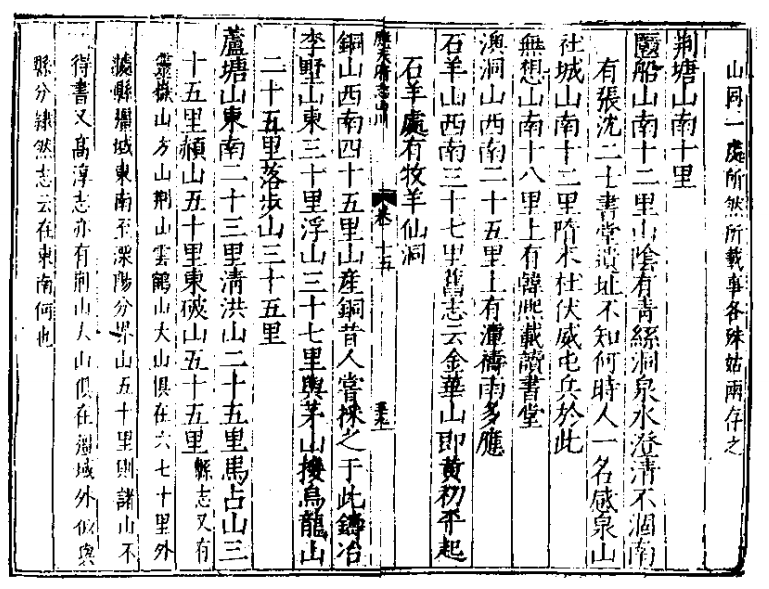 山同一處所然所載事各殊姑兩存之
荆塘山南十里
船山南十二里山陰有青絲洞泉水澄清不涸南
有張沈二七書堂遺址不知何時人一名感泉山
社城山南十二里隋末杜伏威屯兵於此
無想山南十八里上有韓熙載讀書堂
澳洞山西南二十五里上有潭禱雨多應
石羊山西南三十七里舊志云金華山即黃初平起
石羊處有牧羊仙洞
應天府志山川
卷十五
銅山西南四十五里山產銅昔人嘗採之于此鑄冶
李墅山東三十里浮山三十七里與茅山接烏龍山
二十五里落步山三十五里
蘆塘山東南二十三里清洪山二十五里馬占山三
十五里頳山五十里東破山五十五里縣志又有
山方山荆山雲鶴山大山俱在六七十里外
縣壃域東南至溧陽分界山五十里則諸山不
得書又高淳志亦有荆山大山俱在溫域外似與
縣分隸然志云在東南何也